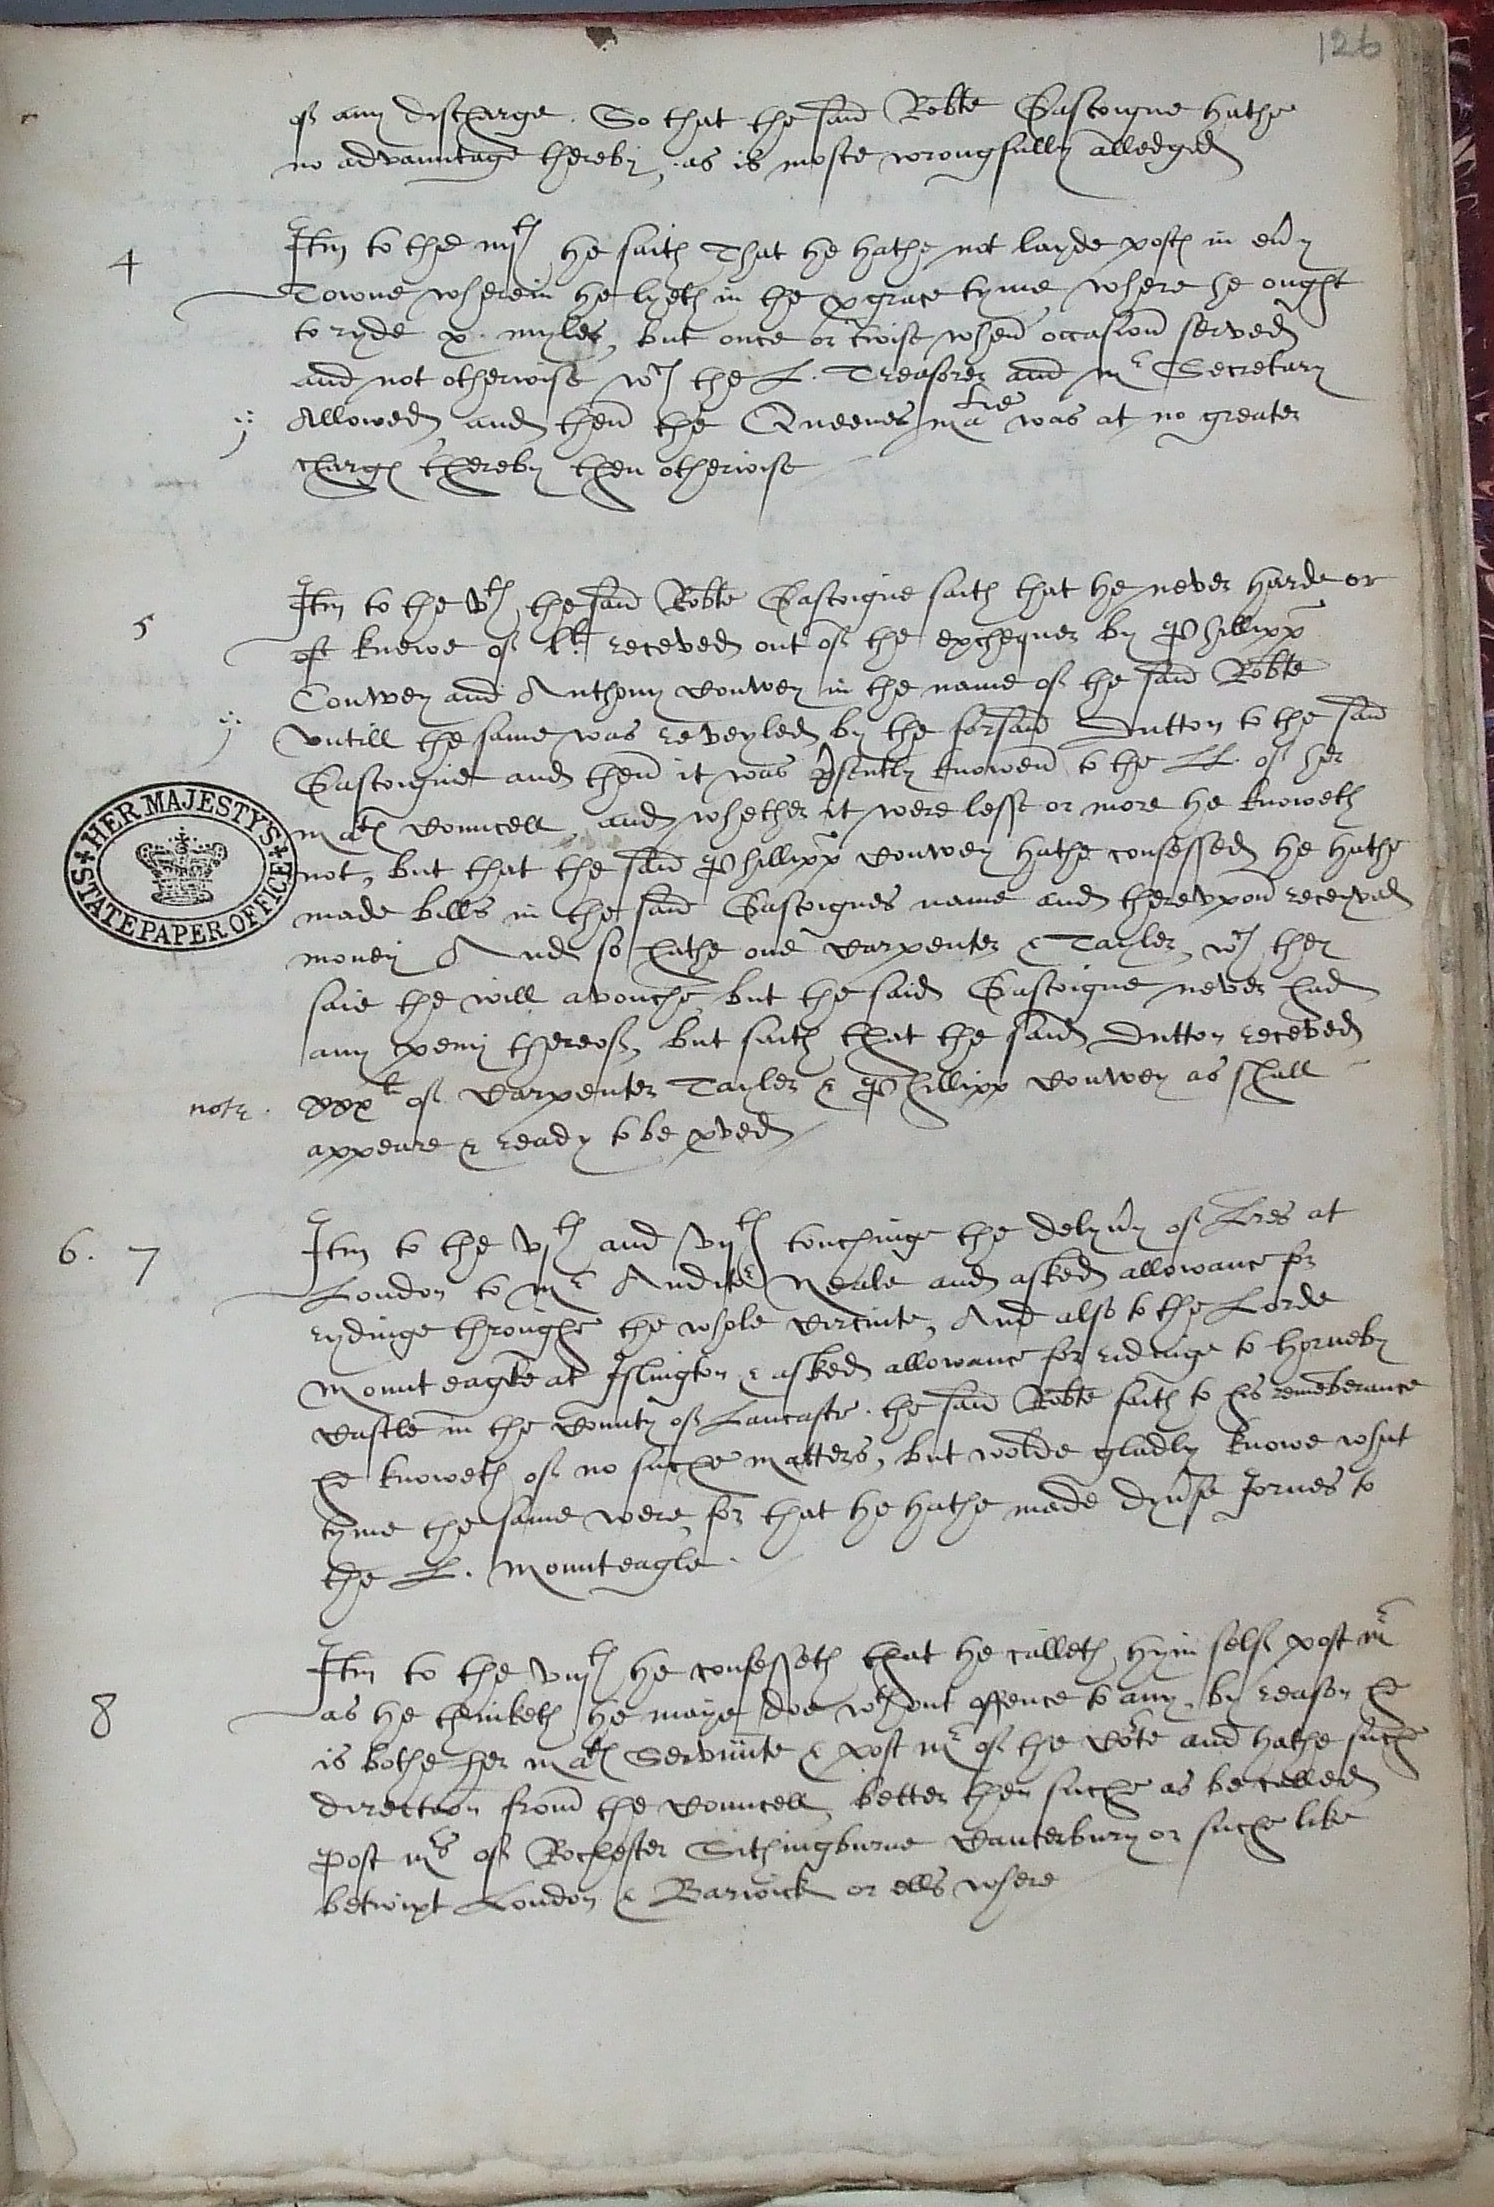 126
of any discharge. So that the said Robte Gascoigne hathe
no advauntage thereby, as is moste wrongfully alledged
4
Itm to the iiijth he saith That he hathe not layde post in euy
Towne wherein he lyeth in the pgrace tyme where he ought
to ryde x. myles, but once or twise when occasion served
and not otherwise wch the L. Treasorer and mr Secretary
Allowed, and then the Queenes matie was at no greater
charg thereby then otherwise
5
Itm to the vth, the said Robte Gascoigne saith that he never harde or
knewe of receved out of the exchequer by Phillipp
Conwey and Anthony Conwey in the name of the said Robte
vntill the same was reveyled by the forsaid Dutton to the said
Gascoigne and then it was psently knowen to the LL. of her
mats Councell, and whether it were lesse or more he knoweth
not, but that the said Phillipp Conwey hathe confessed he hathe
made bills in the said Gascoignes name and therevpon receyved
money And so hathe one Carpenter & Tayler, wch they
saie the will avouche, but the said Gascoigne never had
any peny thereof, but saith that the said Dutton receved
note. xxxl of Carpenter Tayler & Phillipp Conwey as shall
appeare & ready to be pved
6. 7
Itm to the vjth and vijth touchinge the delyuy of Lres at
London to mr Auditr Neale and asked allowance for
rydinge throughe the whole Circuite, And also to the Lorde
Mounteagle at Islington & asked allowance for ridinge to Horneby
Castle in the County of Lancastr. the said Robte saith to his remembrance
he knoweth of no suche matters, but wolde gladly knowe what
tyme the same were, for that he hathe made dyuse Jornes to
the L. Mounteagle.
8
Itm to the viijth he confesseth that he calleth hym self post mr
as he thinketh he maye doe wthout offence to any, by reason he
is bothe her mats Servunte & post mr of the Corte and hathe suche
direction from the Councell, better then suche as be called
post mrs of Rochester Sithingburne Canterbury or suche like
betwixt London & Barwick or ells where
HER MAJESTY'S STATE PAPER OFFICE